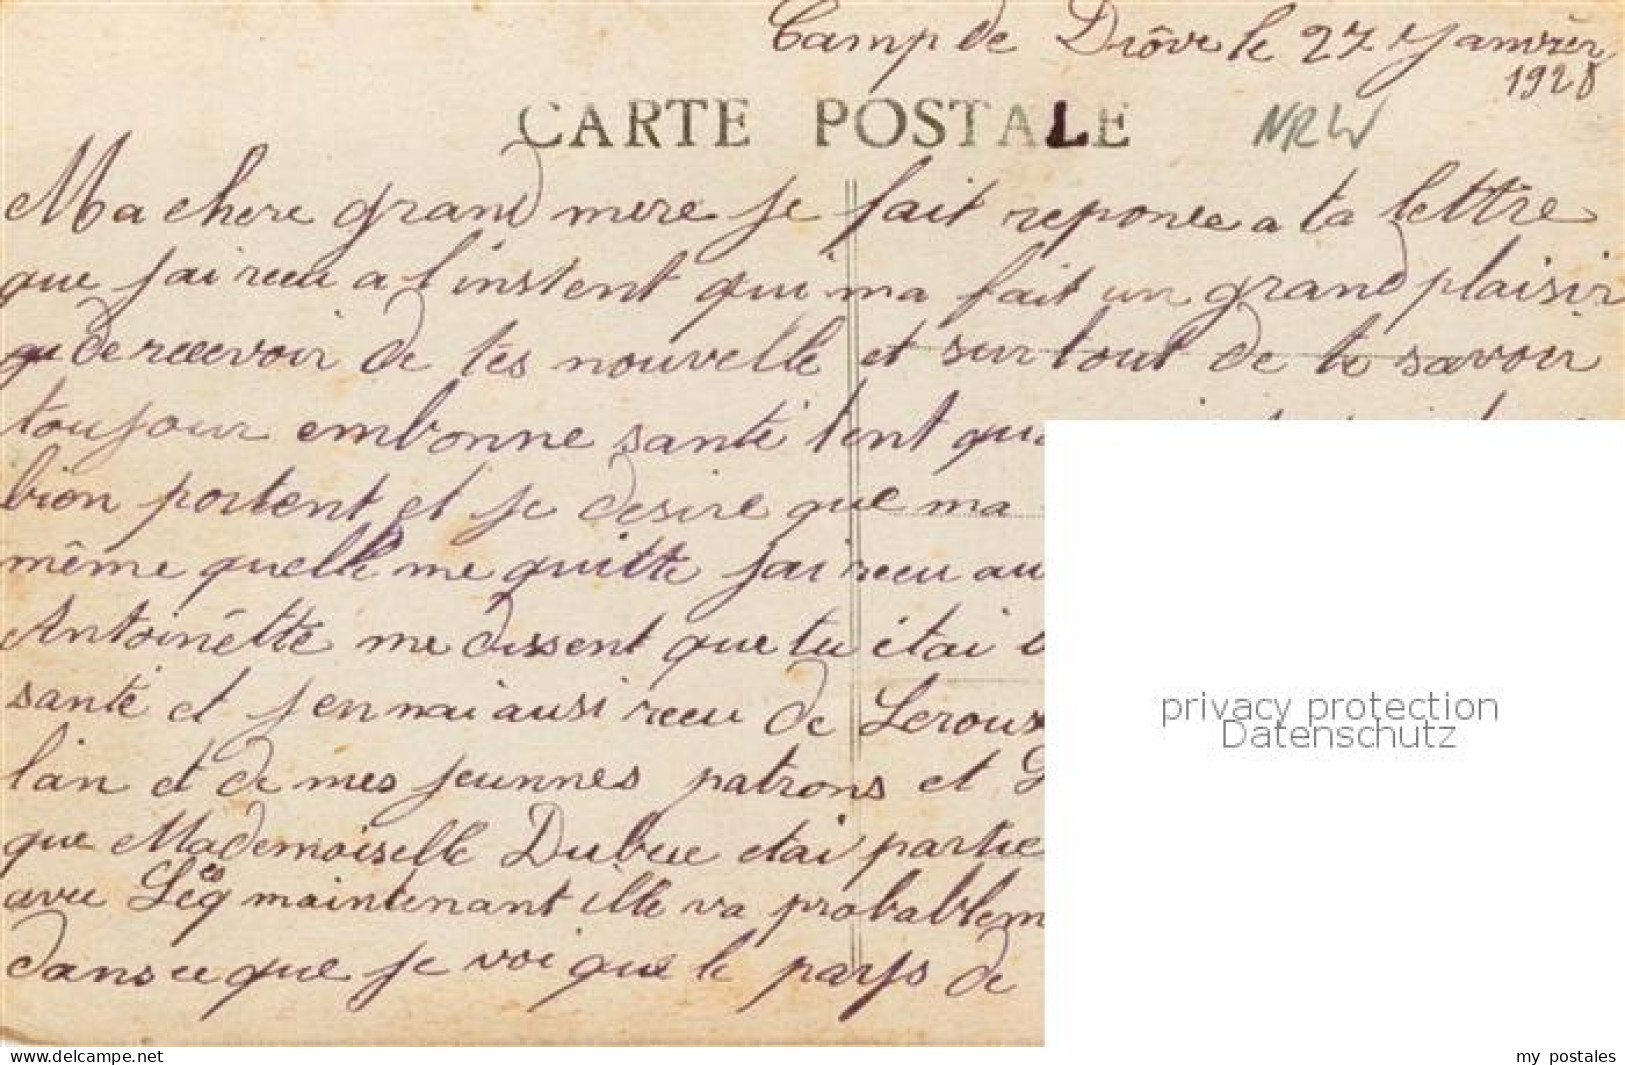 Camp de Drôve le 27 Janvier
1928
CARTE POSTALE
NRW
Ma chere grand mere je fait reponce a ta lettre
que jai recu a l'instent qui ma fait un grand plaisir
de recevoir de tes nouvelle et surtout de te savoir
toujour embonne santé tent que
bien portent et je desire que ma
même quelle me quitte jai recu au
Antoinétte me dissent que tu étai
santé et jennai ausi recu de Leroux
lan et de mes jeunnes patrons et
que Mademoiselle Dubue etai partie
avec maintenant ille va probablem
dans ce que je voi que le pays de
privacy protection
Datenschutz
www.delcampe.net
my_postales